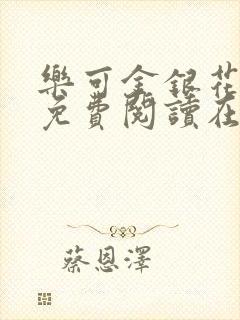 樂可金銀花
免費閱讀在
蔡恩澤